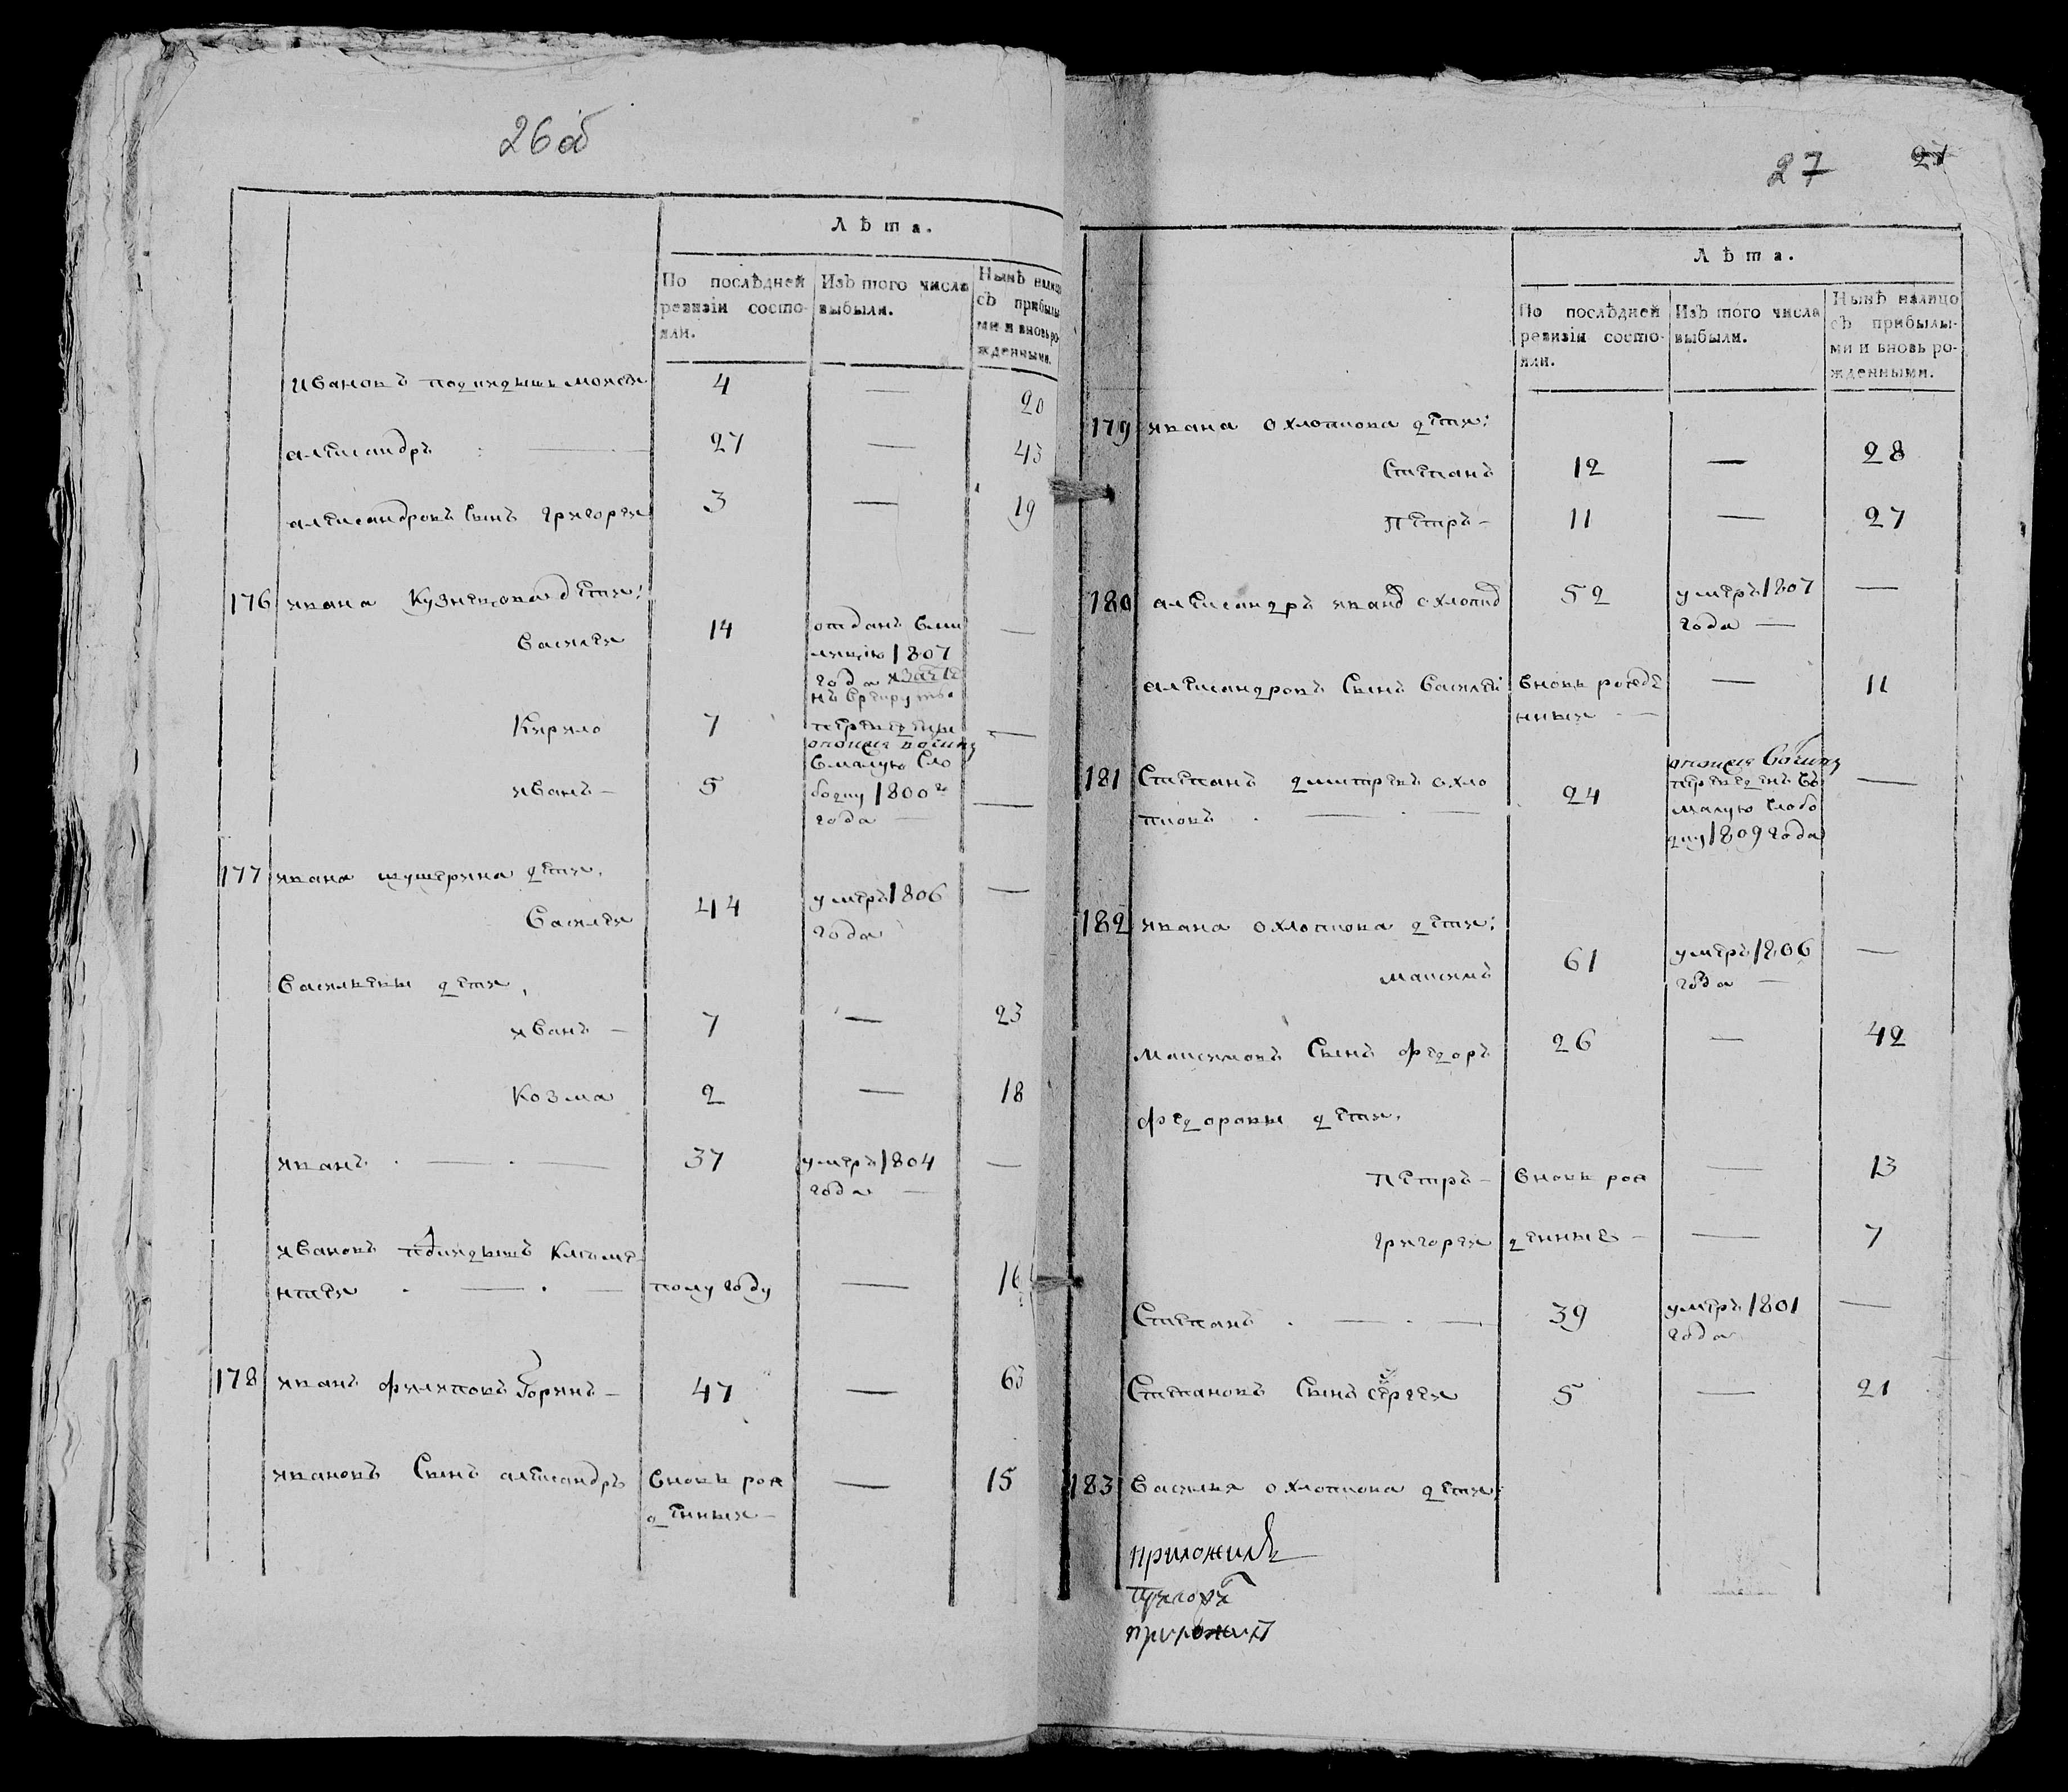 26об
Лѣта.
По послѣдней ревизіи состояли.
Изъ того числа выбыли.
Нынѣ налицо съ прибылыми и вновь рожденными.
Ивановъ подкидышъ Моисеи 4 — 20
алѣксандръ : — 27 — 43
алѣксандровъ Сынъ григореи 3 — 19
176 ивана Кузнецова дѣти:
Василеи 14 отданъ Вми —
лицію 1807
года
Кирило 7 —
Вмалую Сло
иванъ — 5 боцку 1800го —
года —
177 ивана шушерина дѣти.
Василеи 44 умеръ 1806 —
года
Васильевы дѣти,
иванъ — 7 — 23
Козма 2 — 18
иванъ . — . — 37 умеръ 1804 —
года —
ивановъ подкидышъ Клеме
нтеи . — . — полугоду — 16
178 иванъ филиповъ Горинъ — 47 — 63
ивановъ Сынъ алѣксандръ Вновь рож — 15
дѣнныи —
27 27
Лѣта.
По послѣдней ревизіи состояли.
Изъ того числа выбыли.
Нынѣ налицо съ прибылыми и вновь рожденными.
179 ивана охлопкова дѣти:
Стѣпанъ 12 — 28
Пѣтръ — 11 — 27
180 алѣксандръ иванов охлопков 52 умеръ 1807 —
года —
алѣксандровъ Сынъ Василеи Вновь рождѣ — 11
нныи —
181 Стѣпанъ дмитревъ охло 24 перевѣдѣнъ Въ —
пковъ . — . — малую Слобо
дку 1809 года
182 ивана охлопкова дѣти:
максимъ 61 умеръ 1806 —
года —
максимовъ Сынъ фѣдоръ 26 — 42
фѣдоровы дѣти.
Пѣтръ — Вновь рож — 13
григореи дѣнные — — 7
Стѣпанъ . — . — 39 умеръ 1801 —
года
Стѣпановъ Сынъ Сѣргеи 5 — 21
183 Василья охлопкова дѣти:
приложилъ